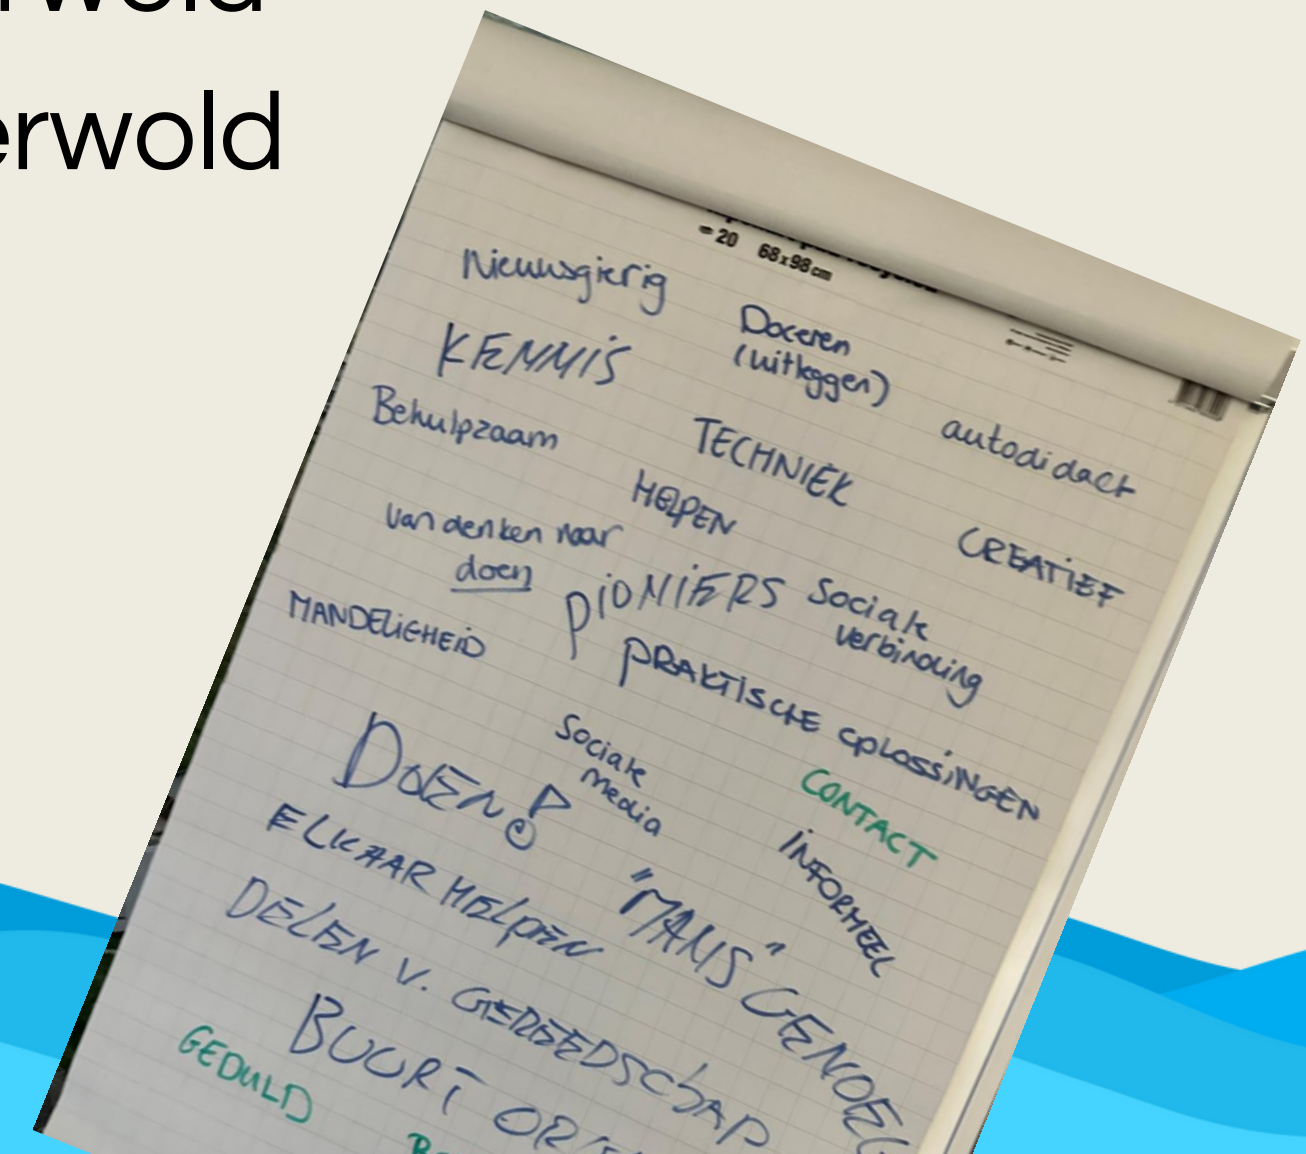 erwold
= 20 68x98cm
Nieuwsgierig
Doceren
(uitleggen)
KENNIS
Behulpzaam
TECHNIEK
autodidact
HELPEN
CREATIEF
van denken naar
doen
PIONIERS
Sociale
verbinding
MANDELIGHEID
PRAKTISCHE OPLOSSINGEN
Sociale
media
DOEN!
CONTACT
INFORMEEL
ELKAAR HELPEN
"MANS" GENOEG
DELEN V. GEREEDSCHAP
BUURT
GEDULD